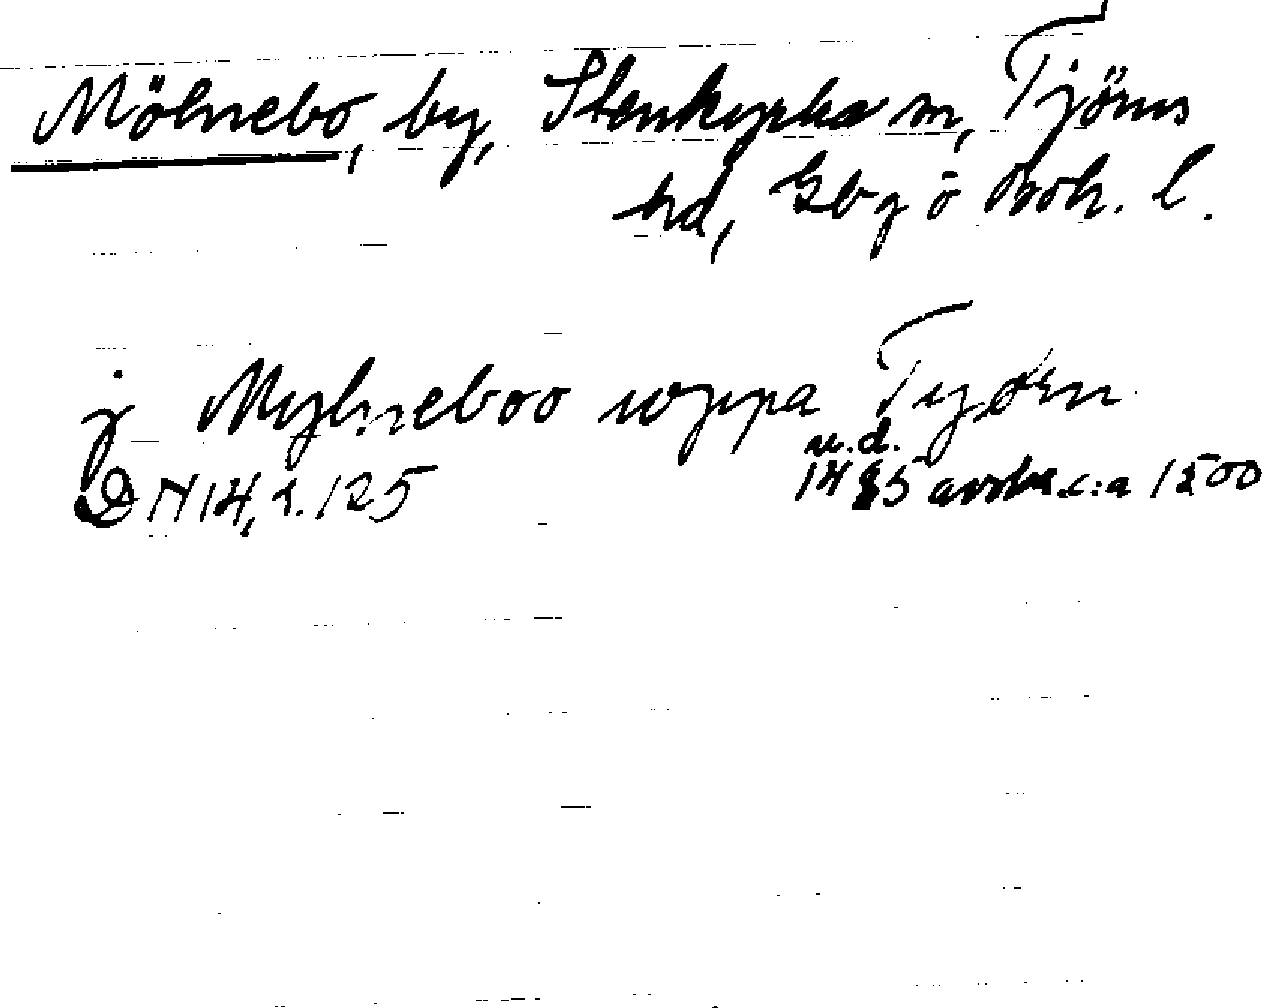 Mölnebo, by, Stenkyrka sn, Tjörns
hd, Gbg o Boh. l.
j Mylneboo uppa Tyørn
u.d.
DN 14, s. 125 1485 avskr. c:a 1500